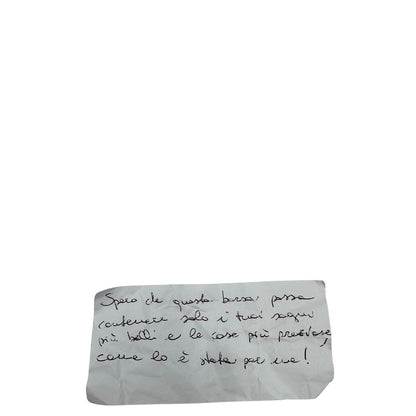 Spero che questa borsa possa
contenere solo i tuoi sogni
più belli e le cose più preziose,
come lo è stata per me!